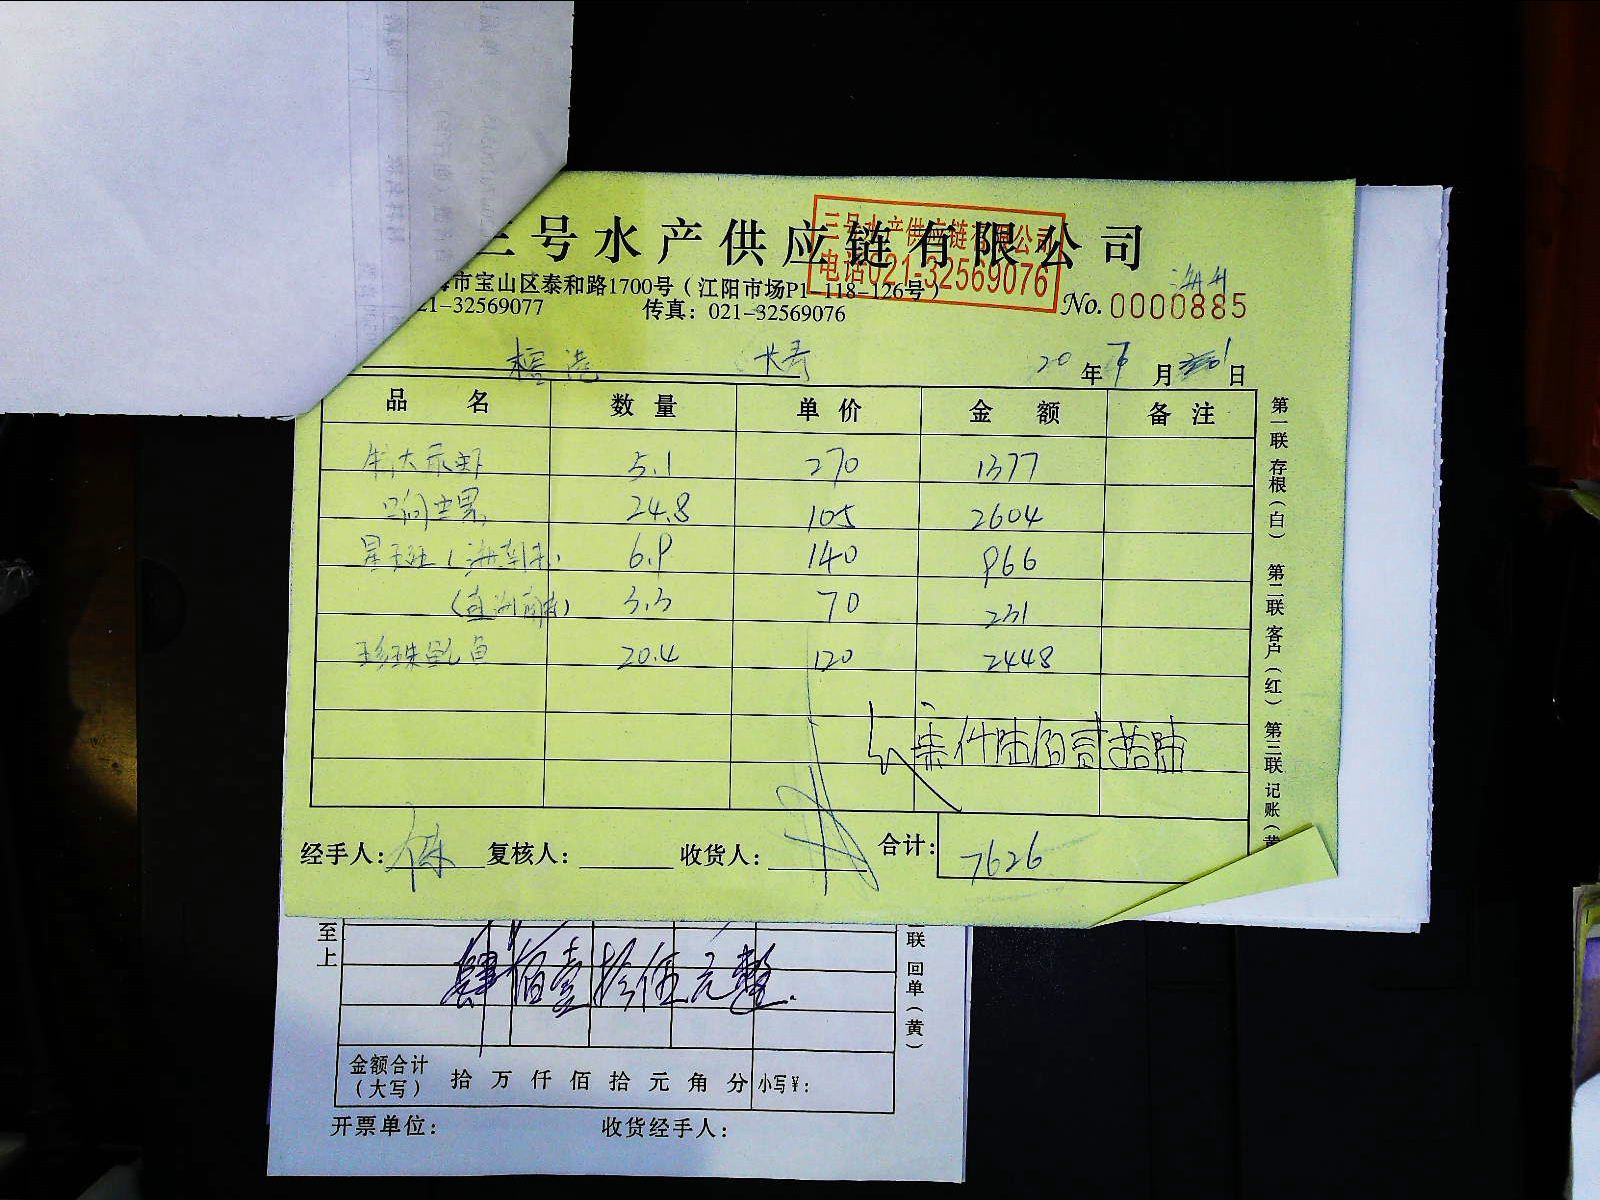 三号水产供应链有限公司
三号水产供应链有限公司
电话021-32569076
海市宝山区泰和路1700号（江阳市场P1-118-126号）
21-32569077 传真：021-32569076
No. 0000885
20 年 月 日
品名 数量 单价 金额 备注
5.1 270 1377
24.8 105 2604
星斑（海南 6.9 140 966
3.3 70 231
珍珠 鱼 20.4 120 2448
柒仟陆佰贰拾陆
经手人： 复核人： 收货人： 合计：7626
第一联 存根（白） 第二联 客户（红） 第三联 记账（黄
至上
肆佰壹拾伍元整.
联 回单（黄）
金额合计（大写） 拾 万 仟 佰 拾 元 角 分 小写¥：
开票单位： 收货经手人：